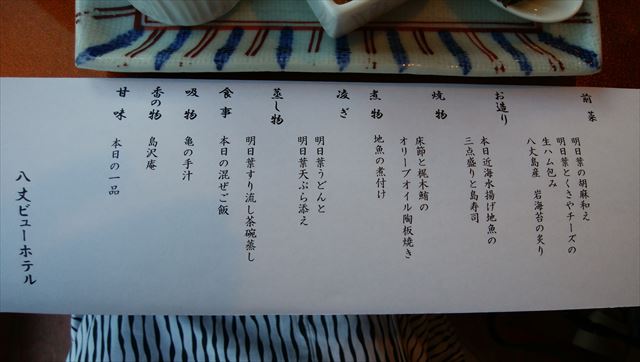 前菜
明日葉の胡麻和え
明日葉とくさやチーズの
生ハム包み
八丈島産 岩海苔の炙り
お造り
本日近海水揚げ地魚の
三点盛りと島寿司
焼物
床節と梶木鮪の
オリーブオイル陶板焼き
煮物
地魚の煮付け
凌ぎ
明日葉うどんと
明日葉天ぷら添え
蒸し物
明日葉すり流し茶碗蒸し
食事
本日の混ぜご飯
吸物
亀の手汁
香の物
島沢庵
甘味
本日の一品
八丈ビューホテル